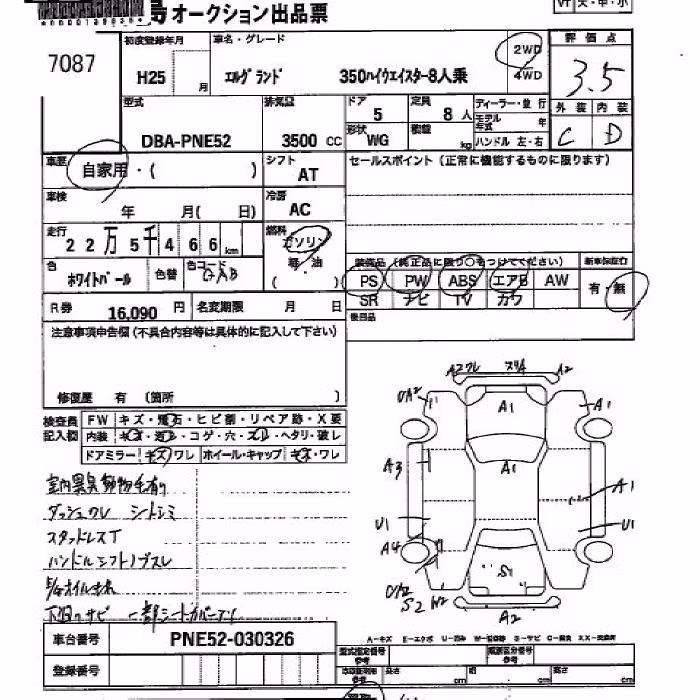 オークション出品票
7087
初度登録年月
車名・グレード
2WD
4WD
評価点
H25 月
エルグランド 350ハイウェイスター8人乗
3.5
型式
排気量
ドア 5
定員 8人
ディーラー・並行
外装 内装
DBA-PNE52
3500 cc
形状 WG
積載 kg
モデル年式 年
ハンドル 左・右
C D
車歴
自家用・( )
シフト
AT
セールスポイント (正常に機能するものに限ります)
車検
年 月( 日)
冷房
AC
走行
22万5千466km
燃料
ガソリン
軽・油
( )
装備品 (純正品に限り○をつけてください)
新車保証書
色
ホワイトパール
色替
色コード
QAB
PS PW ABS エアB AW
有・無
SR ナビ TV カワ
R券 16,090 円
名変期限 月 日
後日品
注意事項申告欄 (不具合内容等は具体的に記入して下さい)
修復歴 有 (箇所 )
検査員
記入欄
FW キズ・飛石・ヒビ割・リペア跡・X要
内装 キズ・汚レ・コゲ・穴・スレ・ヘタリ・破レ
ドアミラー キズ・ワレ ホイール・キャップ キズ・ワレ
室内異臭動物毛有り
ダッシュワレ シートシミ
スタッドレスT
ハンドルシフトノブスレ
下回りサビ 一部シートカバー
A2ワレ スリA A2
UA2 A1 A1
A3 A1 A1
U1 U1
A4 S1
U2
S2 W2 A2
車台番号 PNE52-030326
A-キズ E-エクボ U-凹み W-補修跡 S-サビ C-腐食 XX-交換済
登録番号
型式指定番号
参考
類別区分番号
参考
長さ cm 幅 cm 高さ cm